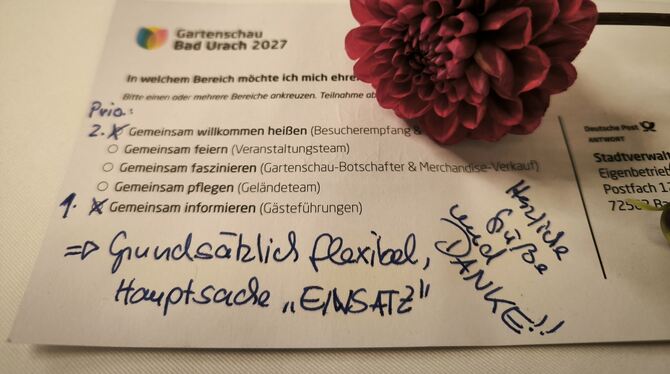 Gartenschau
Bad Urach 2027
In welchem Bereich möchte ich mich
Bitte einen oder mehrere Bereiche ankreuzen. Teilnahme
Prio:
2. X Gemeinsam willkommen heißen (Besucherempfang &
Gemeinsam feiern (Veranstaltungsteam)
Gemeinsam faszinieren (Gartenschau-Botschafter & Merchandise-Verkauf)
Gemeinsam pflegen (Geländeteam)
1. X Gemeinsam informieren (Gästeführungen)
=> Grundsätzlich flexibel,
Hauptsache „EINSATZ"
Herzliche
Grüße
und
DANKE!!
Deutsche Post
ANTWORT
Eigenbetrieb
Postfach